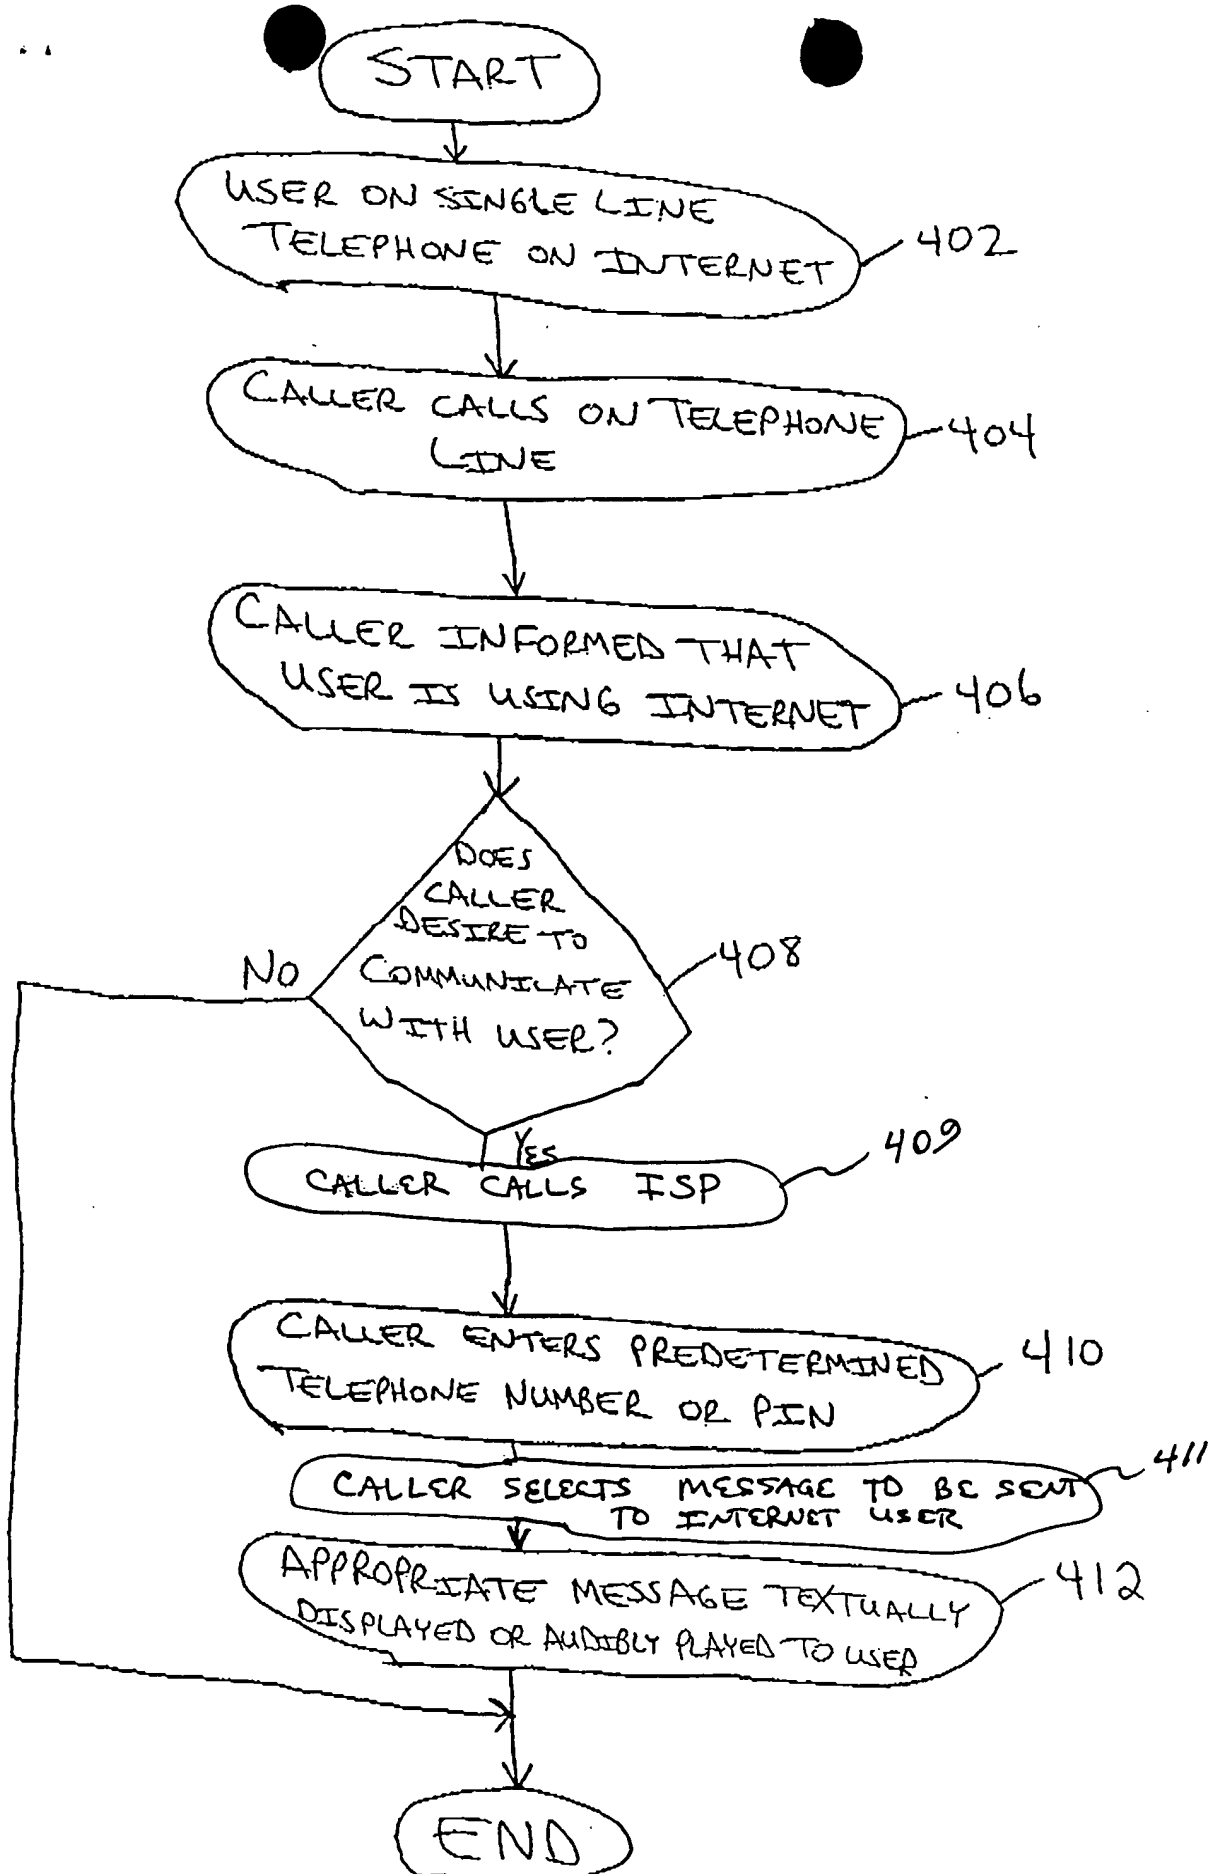 START
USER ON SINGLE LINE
TELEPHONE ON INTERNET
402
CALLER CALLS ON TELEPHONE
LINE
404
CALLER INFORMED THAT
USER IS USING INTERNET
406
DOES
CALLER
DESIRE TO
COMMUNICATE
WITH USER?
408
NO
YES
CALLER CALLS ISP
409
CALLER ENTERS PREDETERMINED
TELEPHONE NUMBER OR PIN
410
CALLER SELECTS MESSAGE TO BE SENT
TO INTERNET USER
411
APPROPRIATE MESSAGE TEXTUALLY
DISPLAYED OR AUDIBLY PLAYED TO USER
412
END